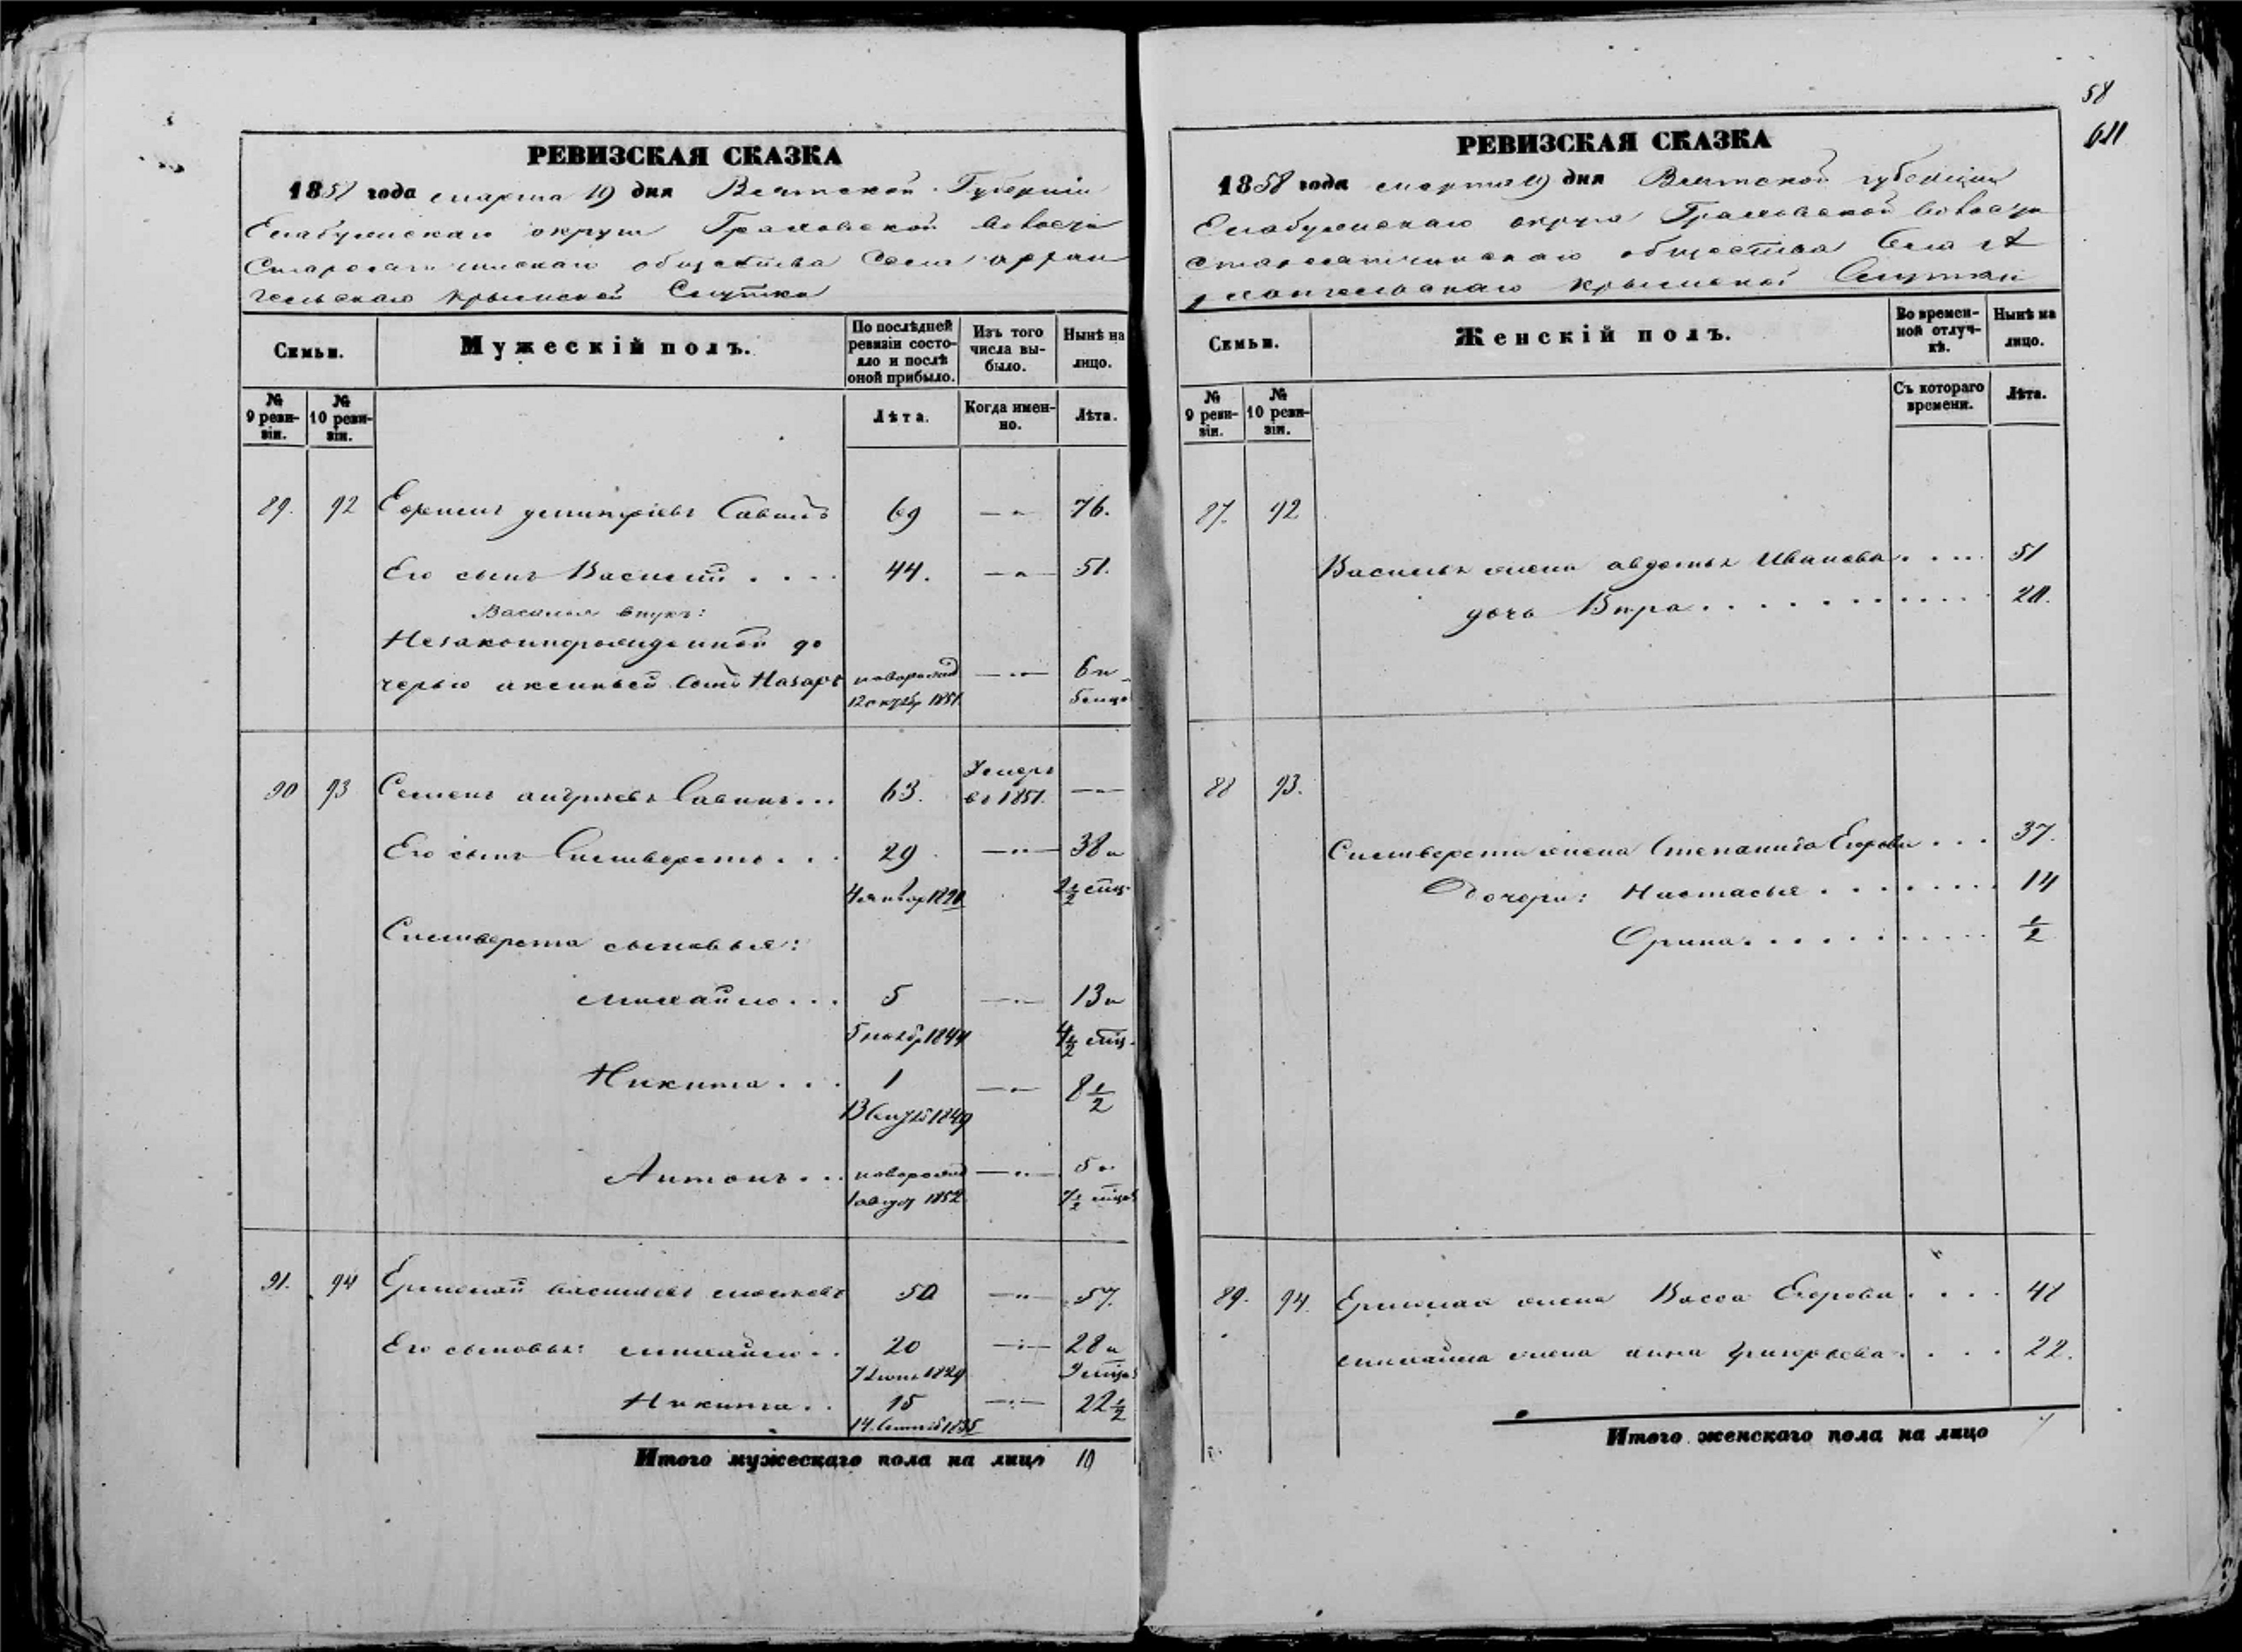 РЕВИЗСКАЯ СКАЗКА
1858 года марта 19 дня Вятской Губерніи
Елабужскаго округа Граховской волости
общества Села Архан
гельскаго Крымской Слутки
Семьи.
Мужескій полъ.
По послѣдней ревизіи состояло и послѣ оной прибыло.
Изъ того числа выбыло.
Нынѣ на лицо.
№ 9 ревизіи.
№ 10 ревизіи.
Лѣта.
Когда именно.
Лѣта.
89. 92 Савинъ 69 — " — 76.
Его сынъ Василій . . . . 44. — " — 51.
Василья внукъ:
Незаконнорожденной до
черью аксиньей сынъ Назаръ новорожд — " — 6 и
12 октяб 1851 5 мцо
90 93 Семенъ андреевъ Савинъ . . . 63. Умеръ въ 1851. — " —
Его сынъ Силиверстъ . . . 29 — " — 38 и
2 1/2 мец.
Силиверста сыновья:
михайло . . . 5 — " — 13 и
5 нояб 1844 4 1/2 мец.
Никита . . . 1 — " — 8 1/2
1849
Антонъ . . . новорожд — " — 5 и
1 авгус 1852 7 1/2 мецов
91. 94 Ермолай васильевъ 50 — " — 57.
Его сыновья: михайло . . 20 — " — 28 и
1829 9 мецов
Никита . . 15 — " — 22 1/2
14 Сентяб 1835
Итого мужескаго пола на лицо 10
58
РЕВИЗСКАЯ СКАЗКА
1858 года марта 19 дня Вятской губерніи
Елабужскаго округа Граховской волости
общества Села Ар
хангельскаго Крымской Слутки
Семьи.
Женскій полъ.
Во временной отлучкѣ.
Нынѣ на лицо.
№ 9 ревизіи.
№ 10 ревизіи.
Съ котораго времени.
Лѣта.
87. 92
Василья жена авдотья Иванова . . . . 51
дочь Вѣра . . . . . . . . . . . 20.
88 93.
Силиверста жена Степанида Егорова . . . 37.
Дочери: Настасья . . . . . . . . 14
Орина . . . . . . . . . . 1/2
89. 94. Ермолая жена Васса Егорова . . . . 48
михайла жена анна Григорьева . . . . 22.
Итого женскаго пола на лицо 7